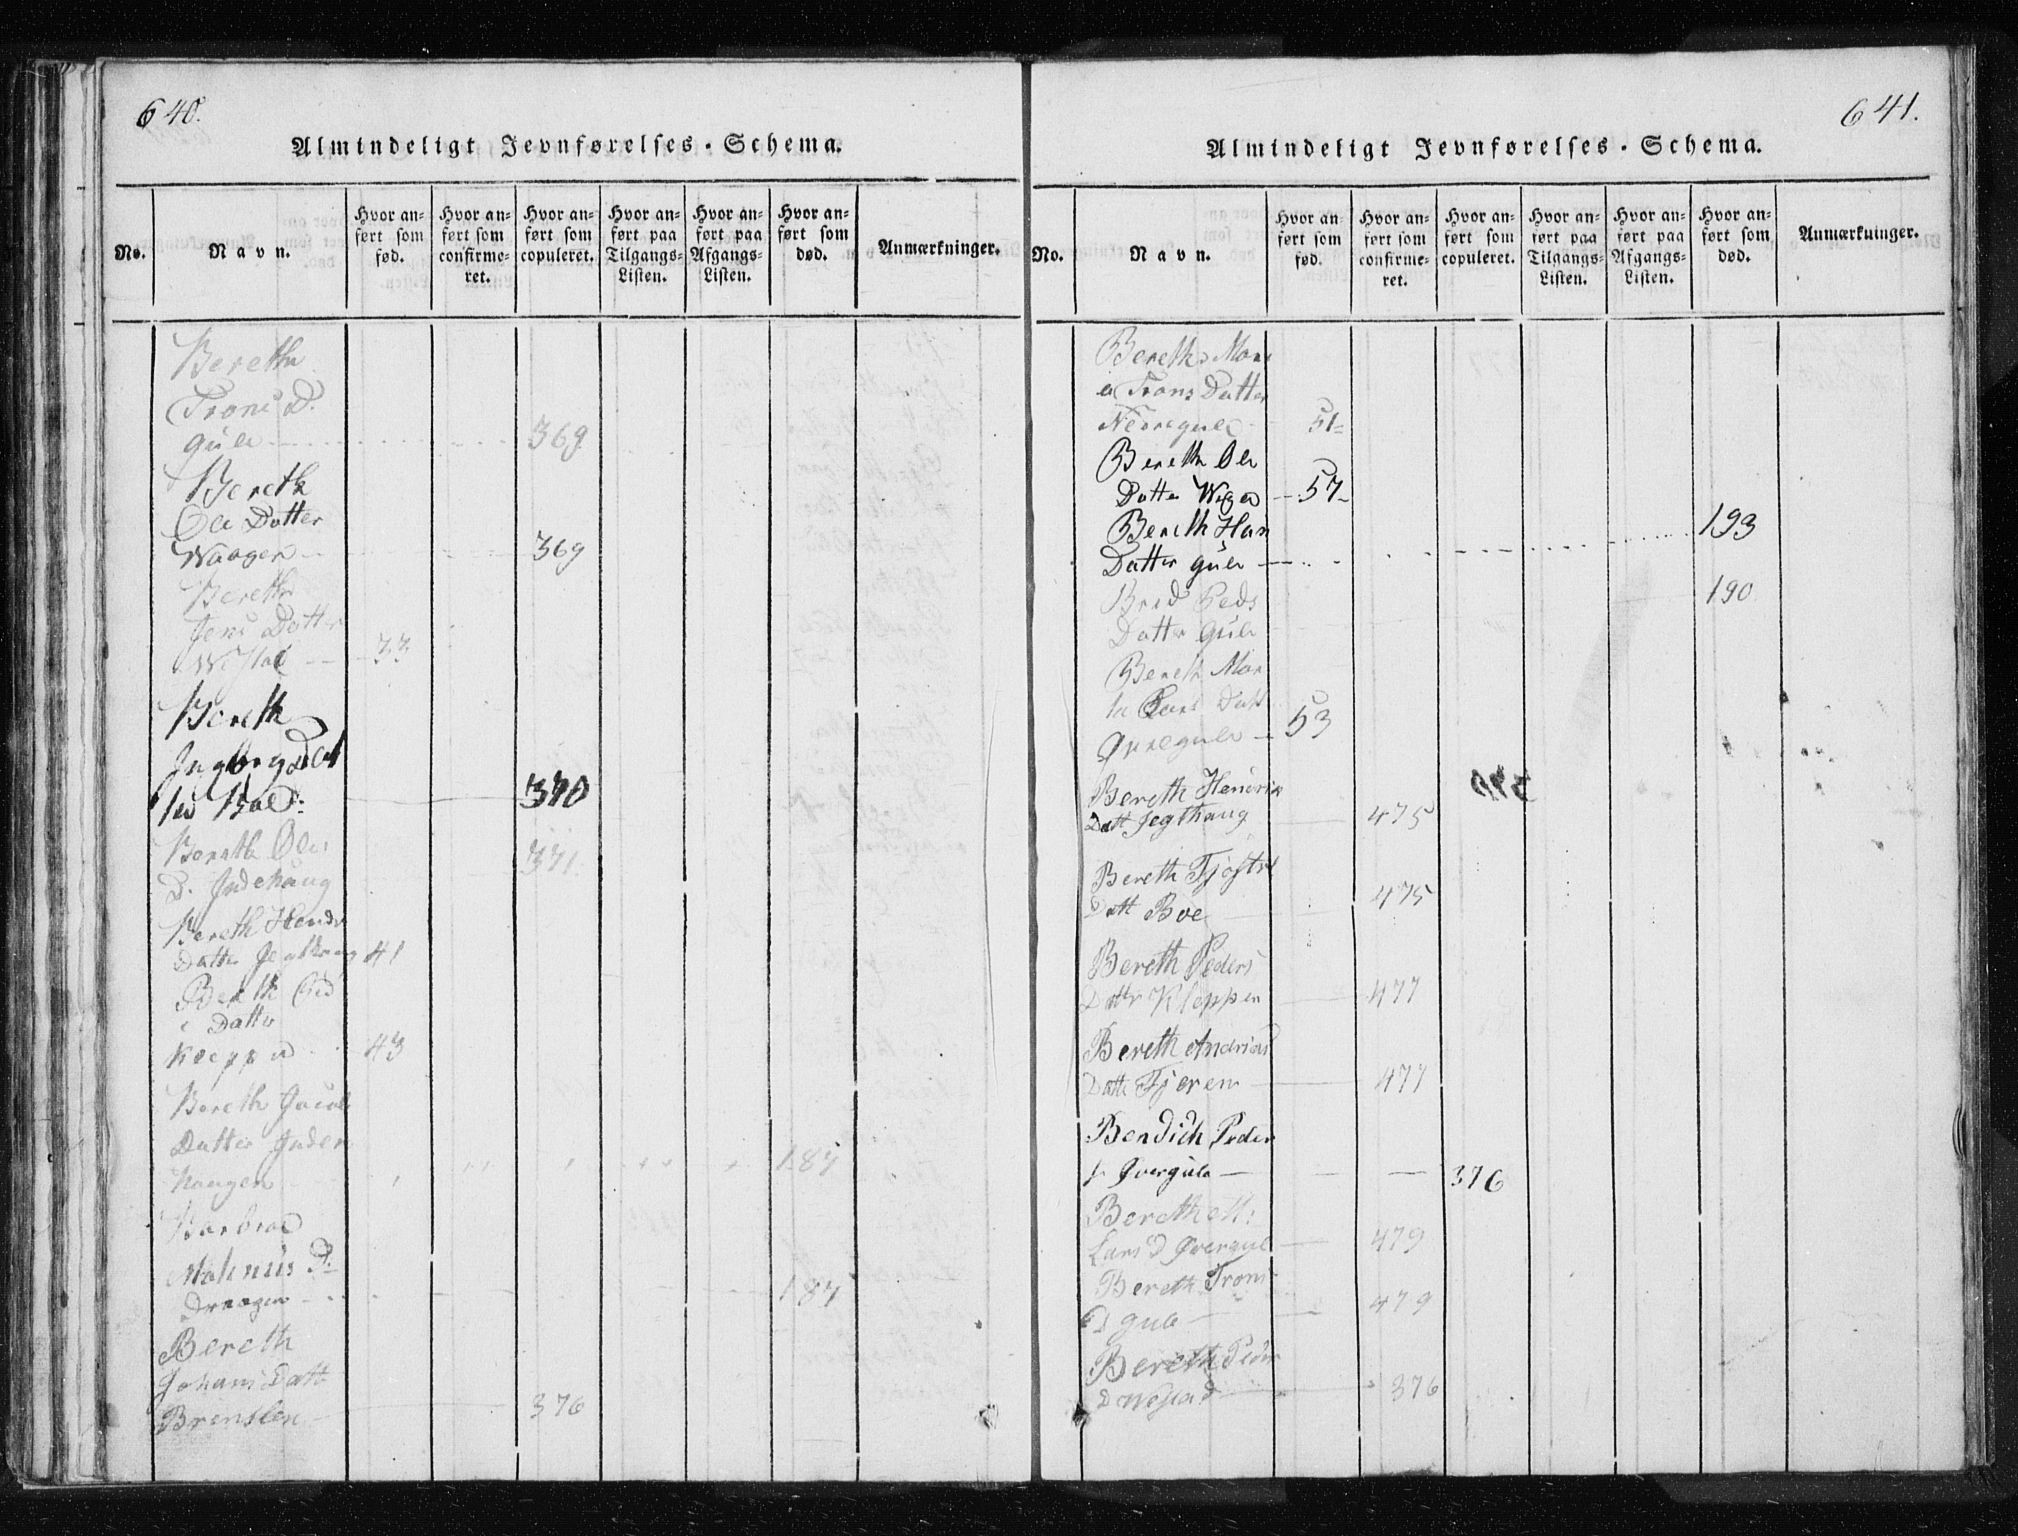 640.
Almindeligt Jevnførelses-Schema.
No.
Navn.
Hvor an-
ført som
fød.
Hvor an-
ført som
confirme-
ret.
Hvor an-
ført som
copuleret.
Hvor an-
ført paa
Tilgangs-
Listen.
Hvor an-
ført paa
Afgangs-
Listen.
Hvor an-
ført som
død.
Anmærkninger.
Beretha
Trons D.
Gule 369
Bereth
Ole Datter
Waagen 369
Bereth
Jens Datter
33
Bereth
370
Bereth Oles
D. Indehaug 371.
Bereth Hendr
Datter 41
Bereth
Datter
Kleppa 43
Bereth Jacob
Datter Inder
Haugen 187
Barbroe
Mahnus D.
Draagen 187
Bereth
Johans Datt
Brenslen 376
641.
Almindeligt Jevnførelses-Schema.
No.
Navn.
Hvor an-
ført som
fød.
Hvor an-
ført som
confirme-
ret.
Hvor an-
ført som
copuleret.
Hvor an-
ført paa
Tilgangs-
Listen.
Hvor an-
ført paa
Afgangs-
Listen.
Hvor an-
ført som
død.
Anmærkninger.
Bereth Mari
a Trons Datter
Nedregule 51
Bereth Ole
Datter 57
Bereth Han 193
Datter Gule
190
Datter Gule
Bereth Mar
ta Lars Datt
Øvregule 53
Bereth Henrik
Datt Jegthaug 475
Bereth
Datt Boe 475
Bereth Peders
Datt Kleppen 477
Bereth Andrias
Datt Fjeren 477
Bendich Peder
s. Øvergule 376
Bereth
Lars D Øvergul 479
Bereth Trons
D Gule 479
Bereth Peder
D 376